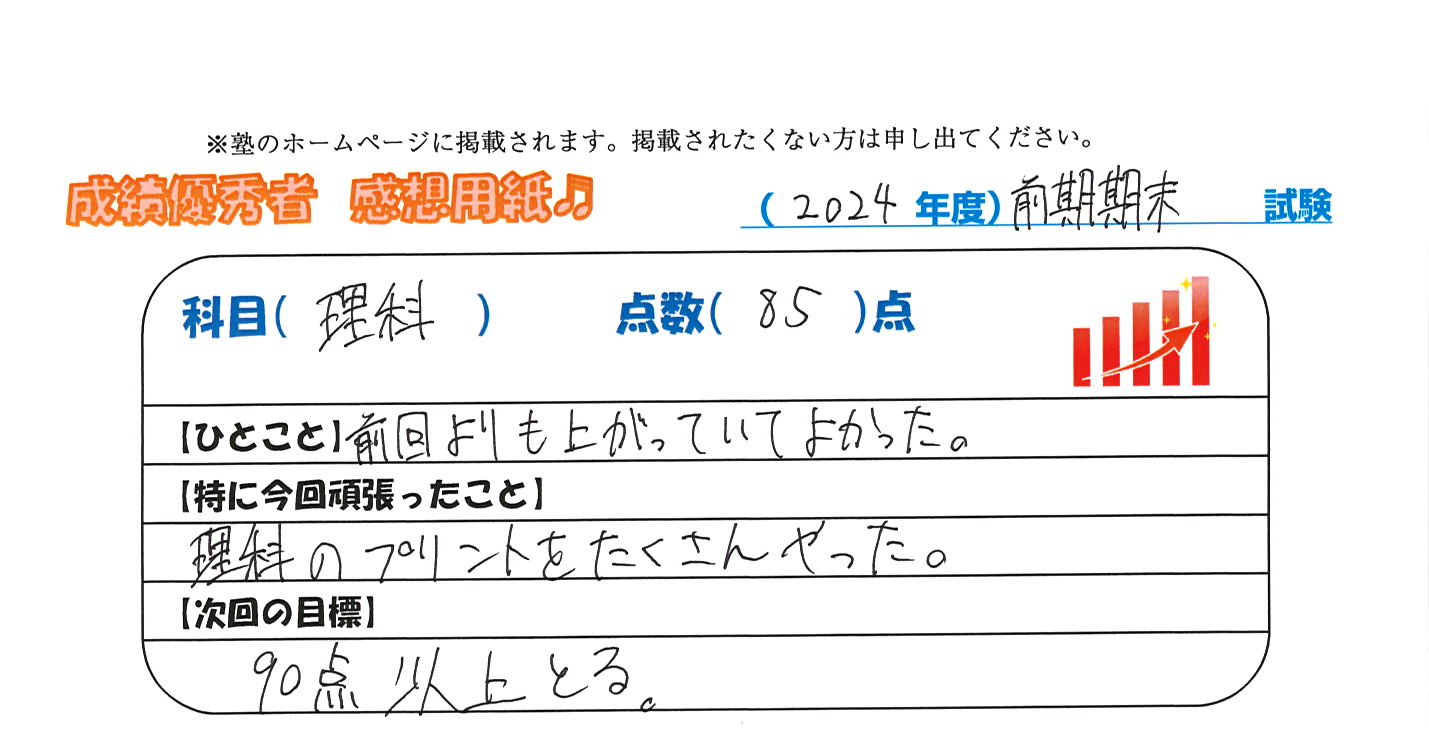 ※塾のホームページに掲載されます。掲載されたくない方は申し出てください。
成績優秀者 感想用紙♫
(2024年度)前期期末 試験
科目(理科) 点数(85)点
【ひとこと】前回よりも上がっていてよかった。
【特に今回頑張ったこと】
理科のプリントをたくさんやった。
【次回の目標】
90点以上とる。